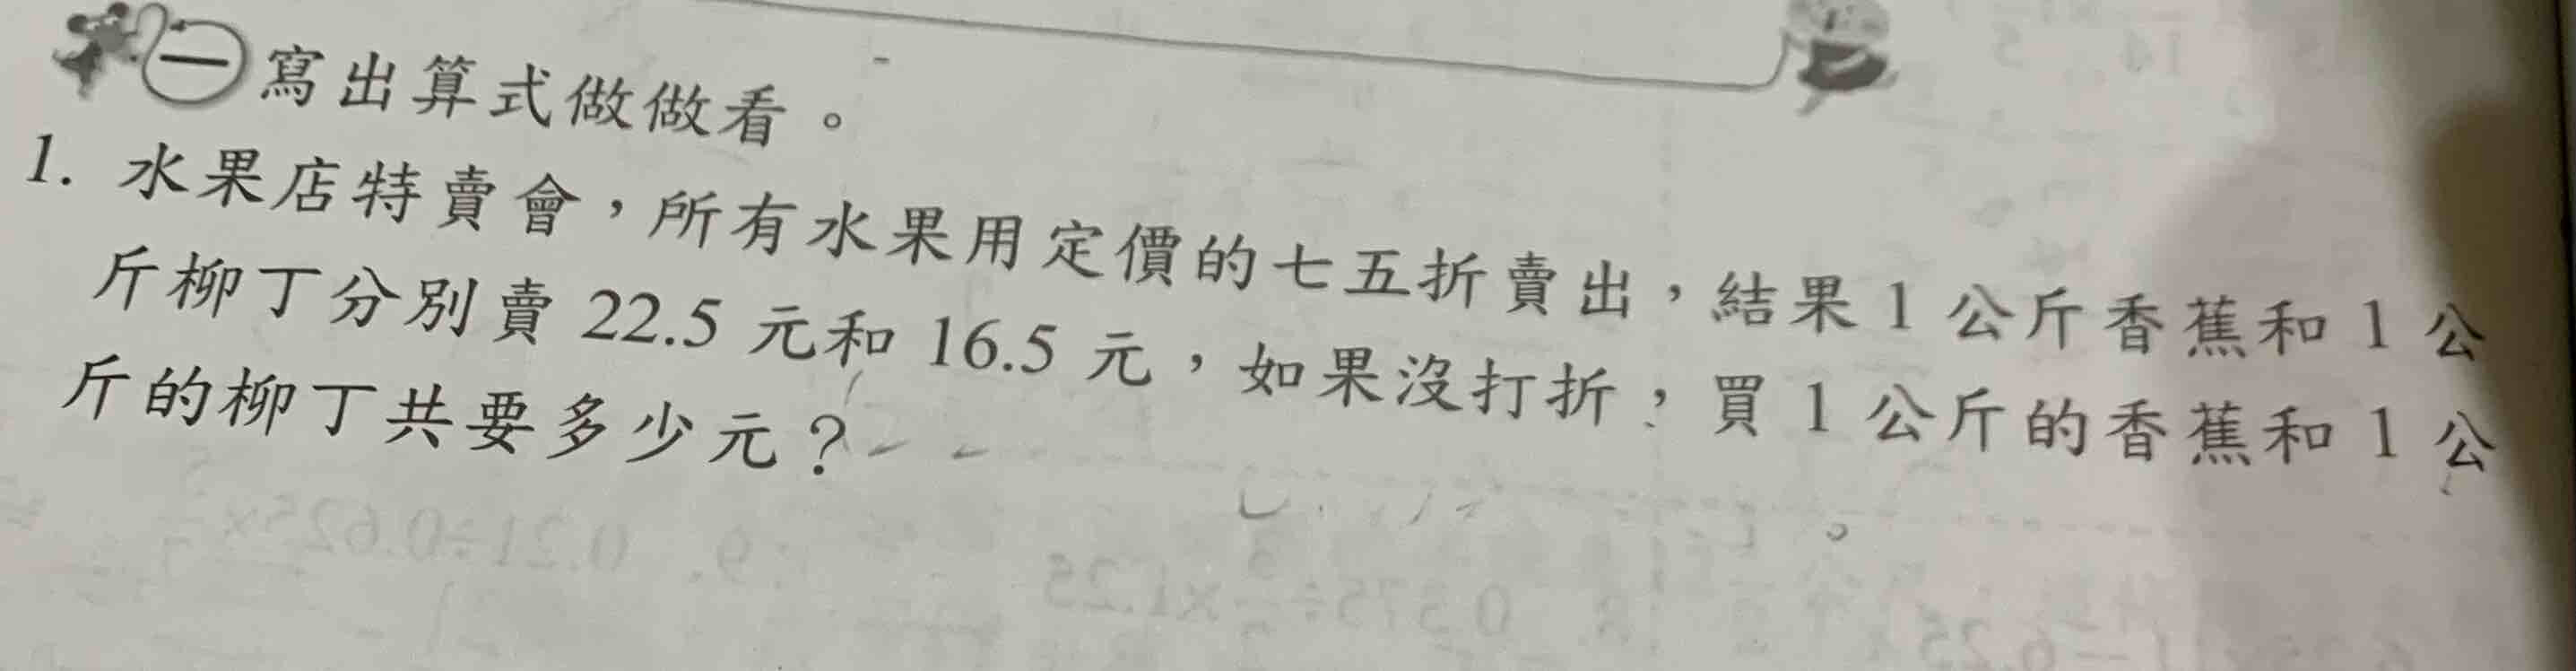 一 寫出算式做做看。
1. 水果店特賣會，所有水果用定價的七五折賣出，結果 1 公斤香蕉和 1 公
斤柳丁分別賣 22.5 元和 16.5 元，如果沒打折，買 1 公斤的香蕉和 1 公
斤的柳丁共要多少元？